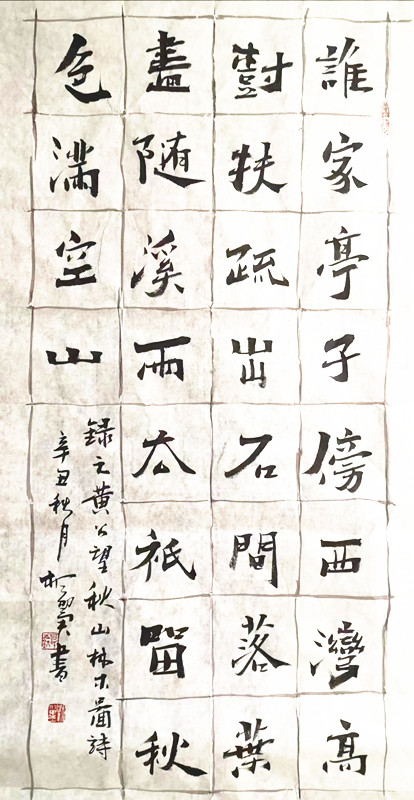 誰家亭子傍西灣高
尌扶疏出石間落葉
盡随溪雨去祇留秋
色滿空山
録元黄公望秋山林木圖詩
辛丑秋月書